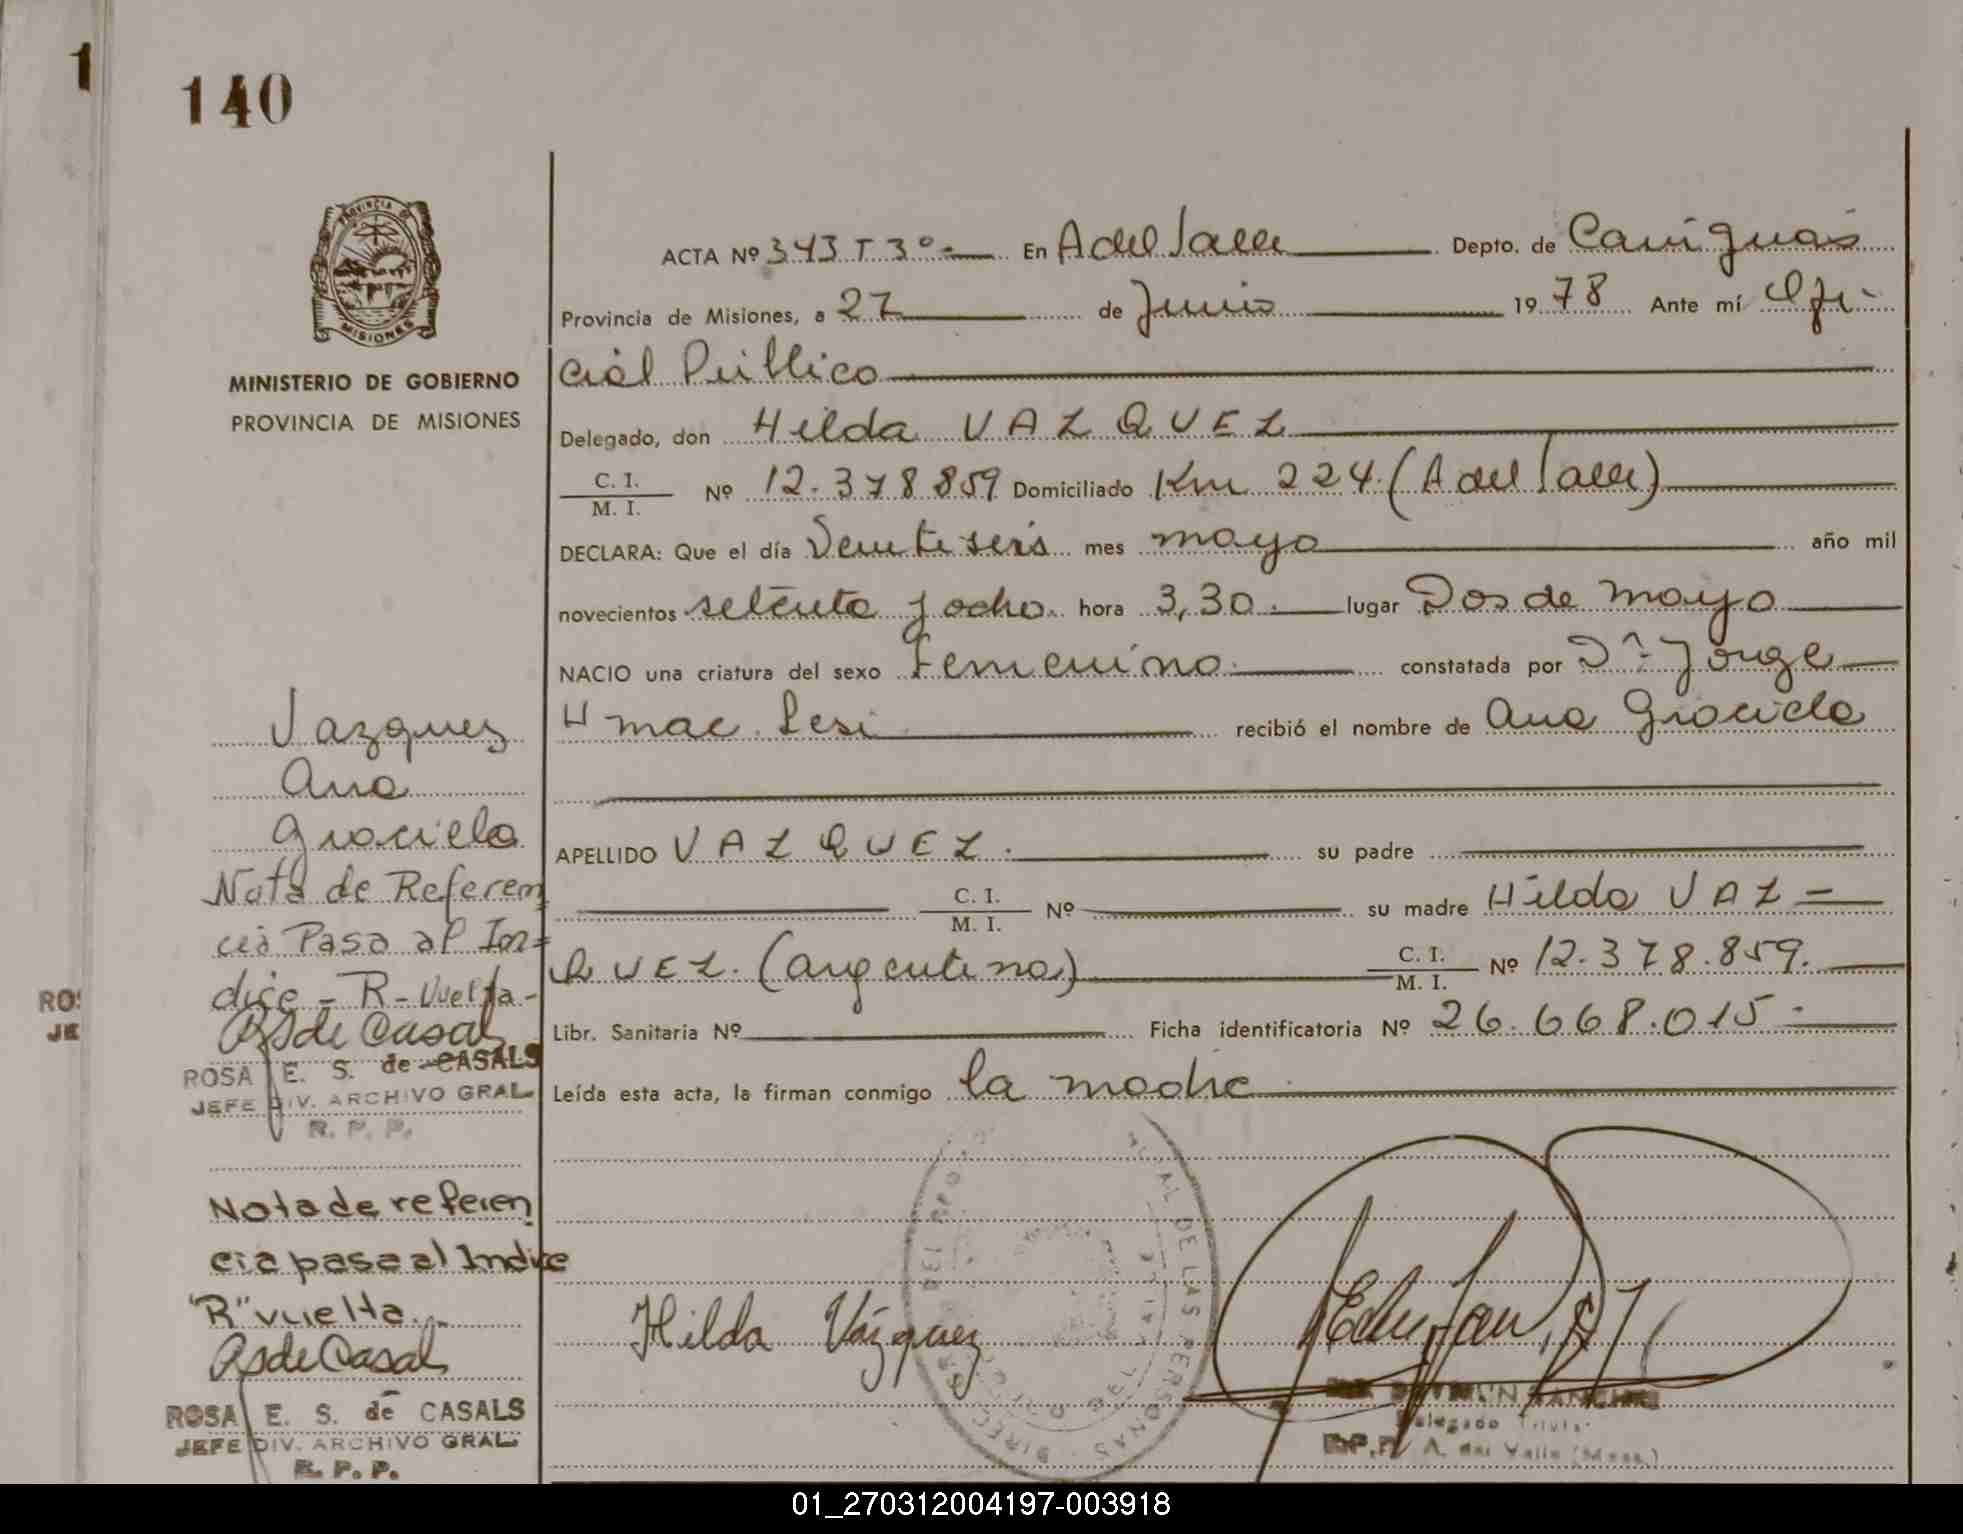 1
140
PROVINCIA DE
MISIONES
MINISTERIO DE GOBIERNO
PROVINCIA DE MISIONES
ACTA Nº 343 T 3º En A del Valle Depto. de Cainguás
Provincia de Misiones, a 27 de Junio 1978 Ante mí Ofi-
cial Público
Delegado, don Hilda VAZQUEZ
C. I.
M. I. Nº 12.378859 Domiciliado Km 224 (A del Valle)
DECLARA: Que el día Veintiseis mes mayo año mil
novecientos setenta y ocho hora 3,30 lugar Dos de Mayo
NACIO una criatura del sexo Femenino constatada por Dr. Jorge
H mac recibió el nombre de Ana Graciela
APELLIDO VAZQUEZ. su padre
C. I.
M. I. Nº su madre Hilda VAZ=
QUEZ. (argentina) C. I.
M. I. Nº 12.378.859.
Libr. Sanitaria Nº Ficha identificatoria Nº 26.668.015
Leída esta acta, la firman conmigo la madre
Vazquez
Ana
Graciela
Nota de Referen
cia Pasa al In=
dice - R - Vuelta -
RSdeCasal
ROSA E. S. de CASALS
JEFE DIV. ARCHIVO GRAL.
R. P. P.
Nota de referen
cia pasa al Indice
"R" vuelta
RSdeCasal
ROSA E. S. de CASALS
JEFE DIV. ARCHIVO GRAL.
R. P. P.
Hilda Vázquez
DE LAS PERSONAS
Delegado Titular
R.P.P. A. del Valle (Mnes.)
ROS
JE
01_270312004197-003918